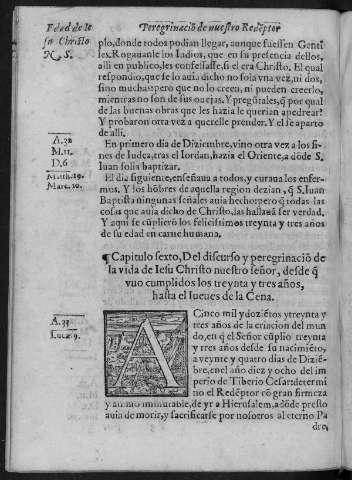 Edad de Ie
su Christo
N. S.
Peregrinació de nuestro Redẽptor
plo, donde todos podian llegar, aunque fuessen Genti
les. Rogauanle los Iudios, que en su presencia dellos,
alli en publico, les confessasse, si el era Christo. El qual
respondio, que se lo auia dicho no sola vna vez, ni dos,
sino muchas: pero que no lo creen, ni pueden creerlo,
mientras no son de sus ouejas. Y pregũtales, q̃ por qual
de las buenas obras que les hazia le querian apedrear?
Y prouaron otra vez a querelle prender. Y el se aparto
de alli.
A. 32
M. 11.
D. 6
En primero dia de Diziembre, vino otra vez a los fi-
nes de Iudea, tras el Iordan, hazia el Oriente, a dõde S.
Iuan solia baptizar.
Matth. 19.
Marc. 10.
El dia siguiente, enseñaua a todos, y curaua los enfer-
mos. Y los hõbres de aquella region dezian, q̃ S. Iuan
Baptista ningunas señales auia hecho: pero q̃ todas las
cosas que auia dicho de Christo, las hallauã ser verdad.
Y aqui se cũplierõ los felicissimos treynta y tres años
de su edad en carne humana.
¶ Capitulo sexto, Del discurso y peregrinació de
la vida de Iesu Christo nuestro señor, desde q̃
vuo cumplidos los treynta y tres años,
hasta el Iueues de la Cena.
A. 33
Lucæ. 9.
A Cinco mil y doziẽtos y treynta y
tres años de la criacion del mun
do, en q̃ el Señor cũplio treynta
y tres años desde su nacimiẽto,
a veynte y quatro dias de Diziẽ-
bre, en el año diez y ocho del im
perio de Tiberio Cesar: determi
no el Redẽptor cõ gran firmeza
y animo immutable, de yr a Hierusalem, a dõde presto
auia de morir, y sacrificarse por nosotros al eterno Pa
dre,